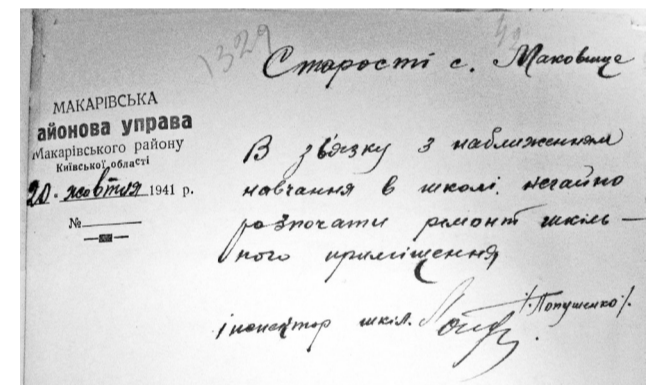 1329
42
Старості с. Маковище
МАКАРІВСЬКА
айонова управа
Макарівського району
Київської області
20. жовтня 1941 р.
№
В зв'язку з наближенням
навчання в школі, негайно
розпочати ремонт шкіль-
ного приміщення
інспектор шкіл.
/. Попушенко /.